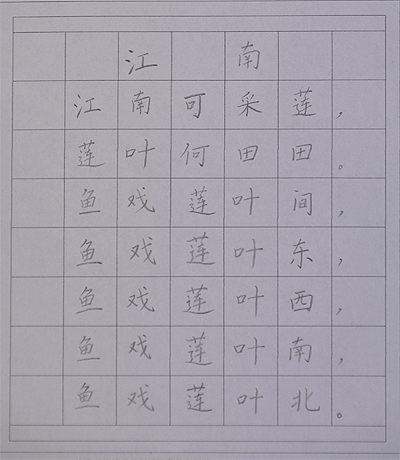 江南
江南可采莲，
莲叶何田田。
鱼戏莲叶间，
鱼戏莲叶东，
鱼戏莲叶西，
鱼戏莲叶南，
鱼戏莲叶北。